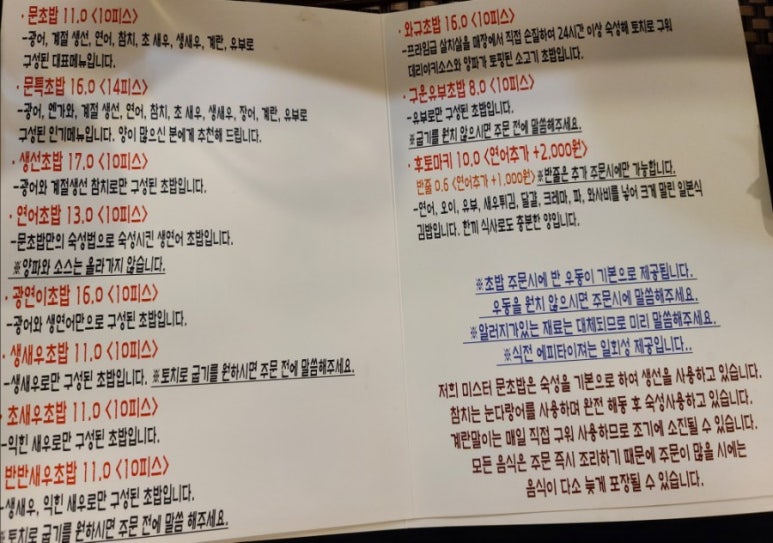 · 문초밥 11.0 <10피스>
-광어, 계절 생선, 연어, 참치, 초 새우, 생새우, 계란, 유부로
구성된 대표메뉴입니다.
· 문특초밥 16.0 <14피스>
-광어, 엔가와, 계절 생선, 연어, 참치, 초 새우, 생새우, 장어, 계란, 유부로
구성된 인기메뉴입니다. 양이 많으신 분에게 추천해 드립니다.
· 생선초밥 17.0 <10피스>
-광어와 계절생선 참치로만 구성된 초밥입니다.
· 연어초밥 13.0 <10피스>
-문초밥만의 숙성법으로 숙성시킨 생연어 초밥입니다.
※양파와 소스는 올라가지 않습니다.
· 광연이초밥 16.0 <10피스>
-광어와 생연어만으로 구성된 초밥입니다.
· 생새우초밥 11.0 <10피스>
-생새우로만 구성된 초밥입니다. ※토치로 굽기를 원하시면 주문 전에 말씀해주세요.
· 초새우초밥 11.0 <10피스>
-익힌 새우로만 구성된 초밥입니다.
반반새우초밥 11.0 <10피스>
-생새우, 익힌 새우로만 구성된 초밥입니다.
※토치로 굽기를 원하시면 주문 전에 말씀 해주세요.
· 와규초밥 16.0 <10피스>
-프라임급 살치살을 매장에서 직접 손질하여 24시간 이상 숙성해 토치로 구워
데리야키소스와 양파가 토핑된 소고기 초밥입니다.
· 구운유부초밥 8.0 <10피스>
-유부로만 구성된 초밥입니다.
※굽기를 원치 않으시면 주문 전에 말씀해주세요.
· 후토마키 10.0 <연어추가 +2,000원>
반줄 0.6 <연어추가 +1,000원> ※반줄은 추가 주문시에만 가능합니다.
-연어, 오이, 유부, 새우튀김, 달걀, 크래마, 파, 와사비를 넣어 크게 말린 일본식
김밥입니다. 한끼 식사로도 충분한 양입니다.
※초밥 주문시에 반 우동이 기본으로 제공됩니다.
우동을 원치 않으시면 주문시에 말씀해주세요.
※알러지가있는 재료는 대체되므로 미리 말씀해주세요.
※식전 에피타이저는 일회성 제공입니다..
저희 미스터 문초밥은 숙성을 기본으로 하여 생선을 사용하고 있습니다.
참치는 눈다랑어를 사용하며 완전 해동 후 숙성사용하고 있습니다.
계란말이는 매일 직접 구워 사용하므로 조기에 소진될 수 있습니다.
모든 음식은 주문 즉시 조리하기 때문에 주문이 많을 시에는
음식이 다소 늦게 포장될 수 있습니다.